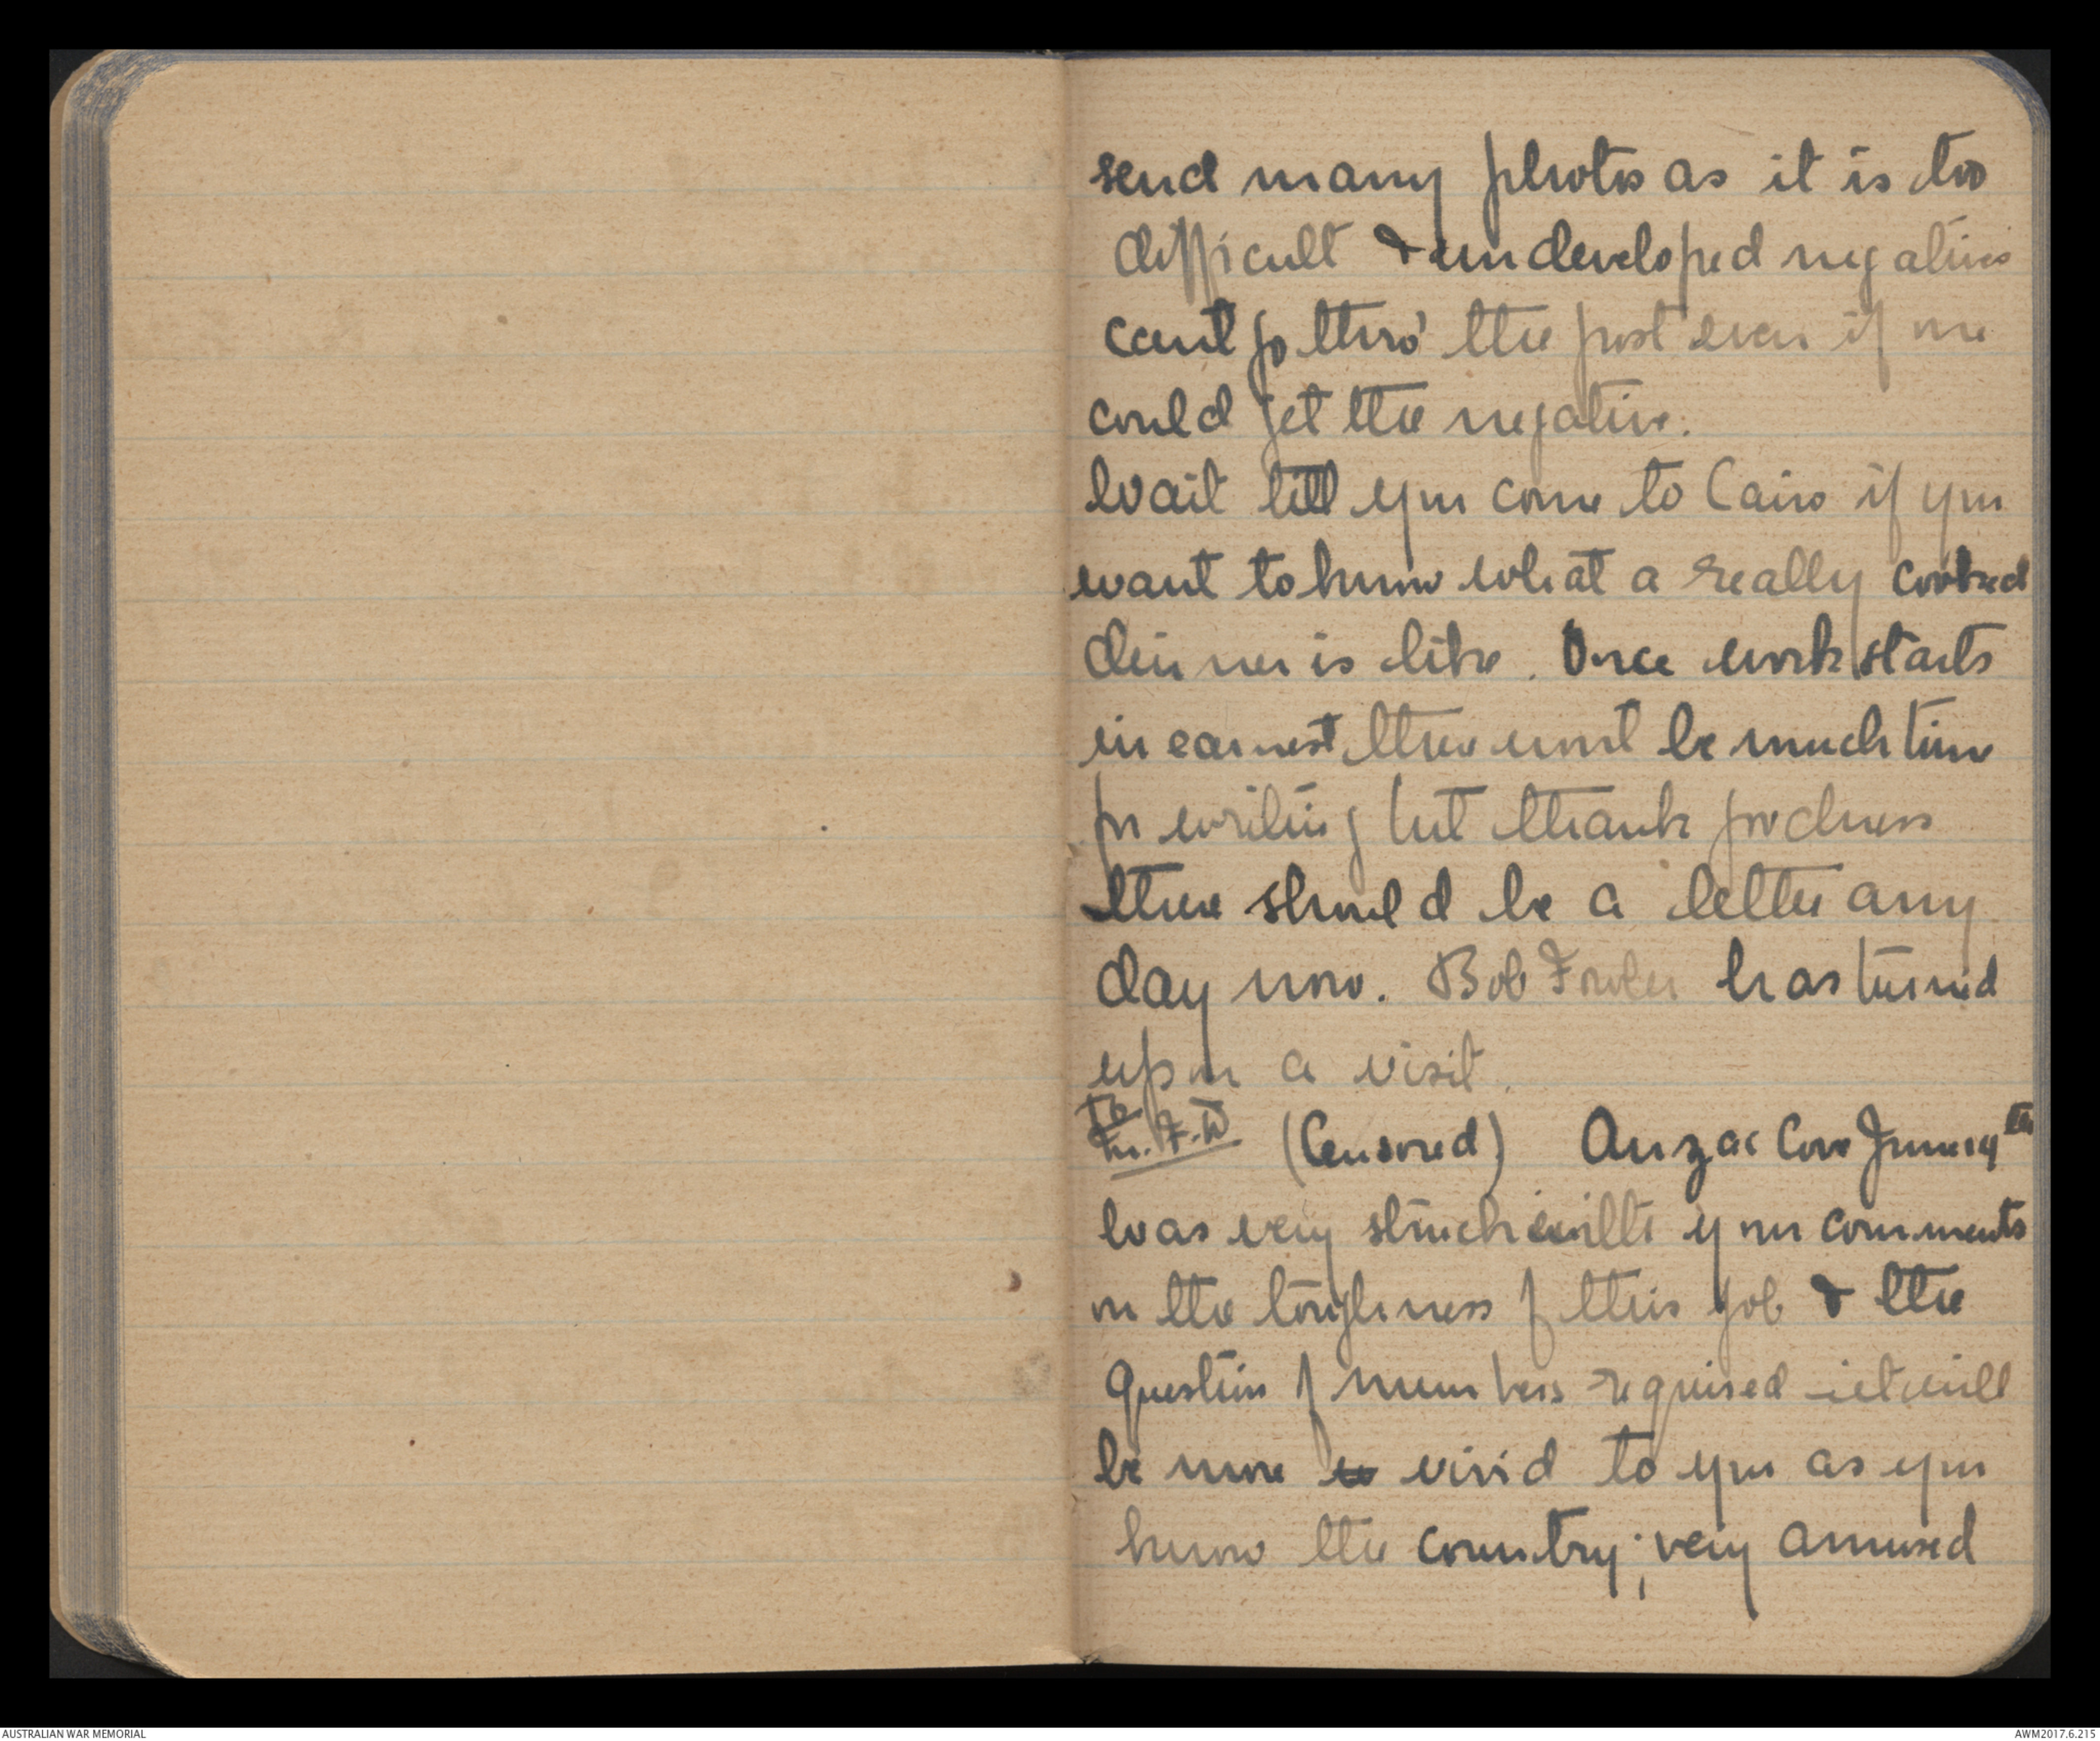 send many photos as it is too
difficult & undeveloped negatives
cant go thro' the post even if one
could get the negative.
Wait till you come to Cairo if you
want to know what a really cooked
dinner is like. Once work starts
in earnest there wont be much time
for writing but thank goodness
there should be a letter any
day now. Bob Fowler has turned
up on a visit.
To
M.F.W (Censored) Anzac Cove June 14th
Was very struck with your comments
on the toughness of this job & the
question of numbers required - it will
be more vivid to you as you
know the country; very amused
AUSTRALIAN WAR MEMORIAL
AWM2017.6.215